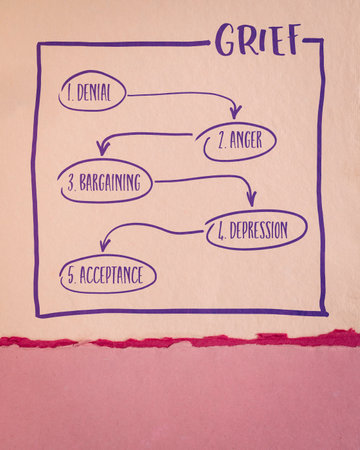 GRIEF
1. DENIAL
2. ANGER
3. BARGAINING
4. DEPRESSION
5. ACCEPTANCE